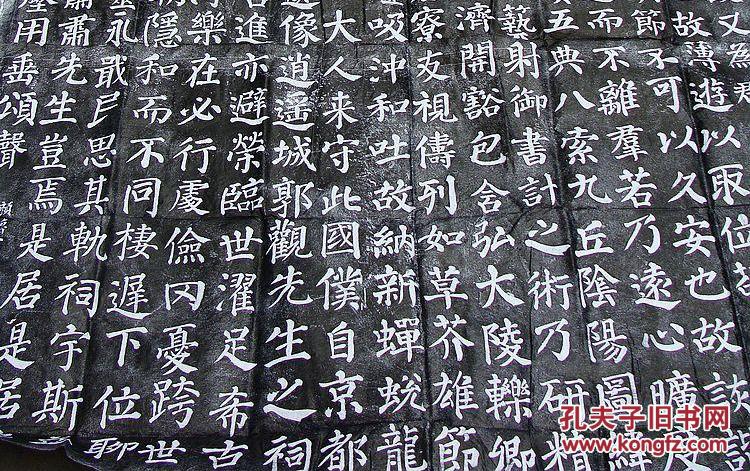 故薄遊以取位
節不可以久安也故談
而不離羣若乃遠心曠度
五典八索九丘陰陽圖緯
藝射御書計之術乃研精
濟開豁包含弘大陵轢卿
寮友視儔列如草芥雄節
吸沖和吐故納新蟬蛻龍
大人来守此國僕自京都
像逍遥城郭觀先生之祠
進亦避榮臨世濯足希古
樂在必行處儉罔憂跨世
隱和而不同棲遲下位聊
永戢民思其軌祠宇斯
肅先生豈焉是居是居
用垂頌聲
孔夫子旧书网
www.kongfz.com